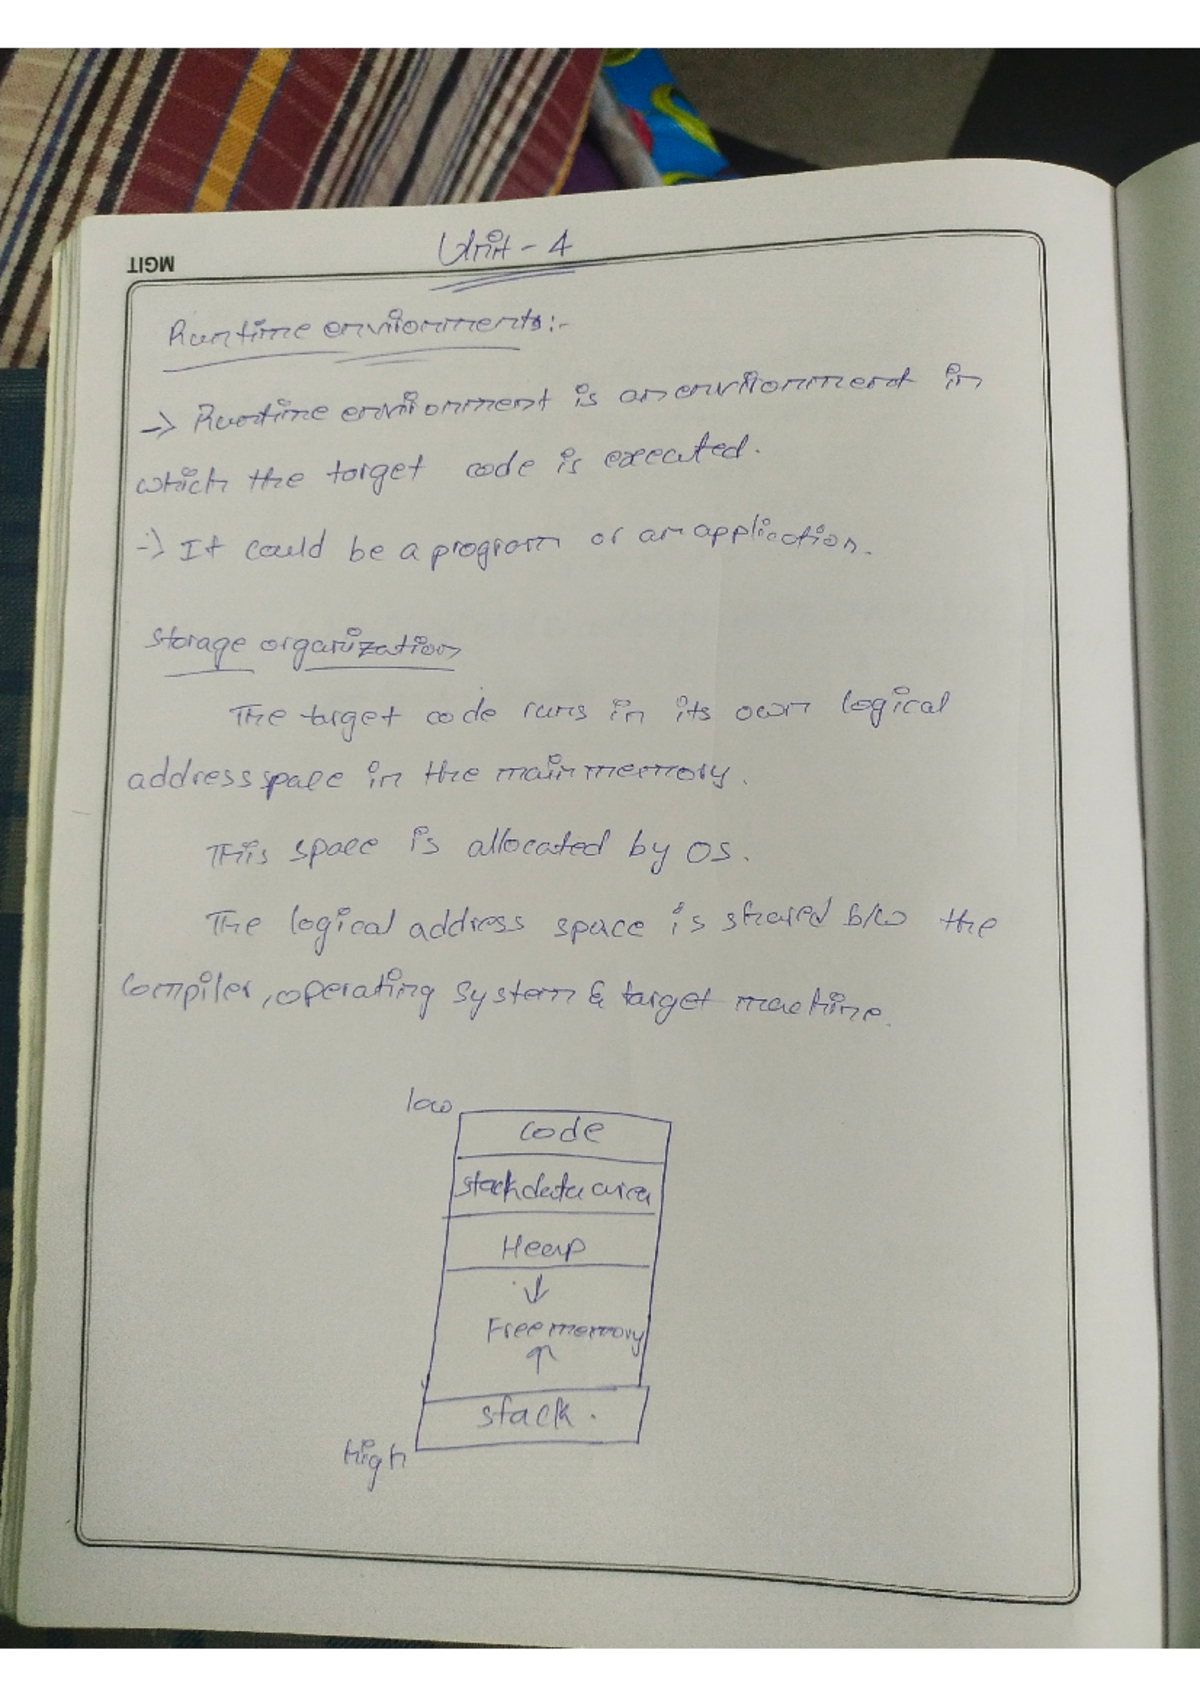 MGIT
Unit - 4
Runtime environments:-
-> Runtime environment is an environment in
which the target code is executed.
-> It could be a program or an application.
Storage organization
The target code runs in its own logical
address space in the main memory.
This space is allocated by OS.
The logical address space is shared b/w the
compiler, operating system & target machine.
low
code
stack data area
Heap
↓
Free memory
↑
stack.
High